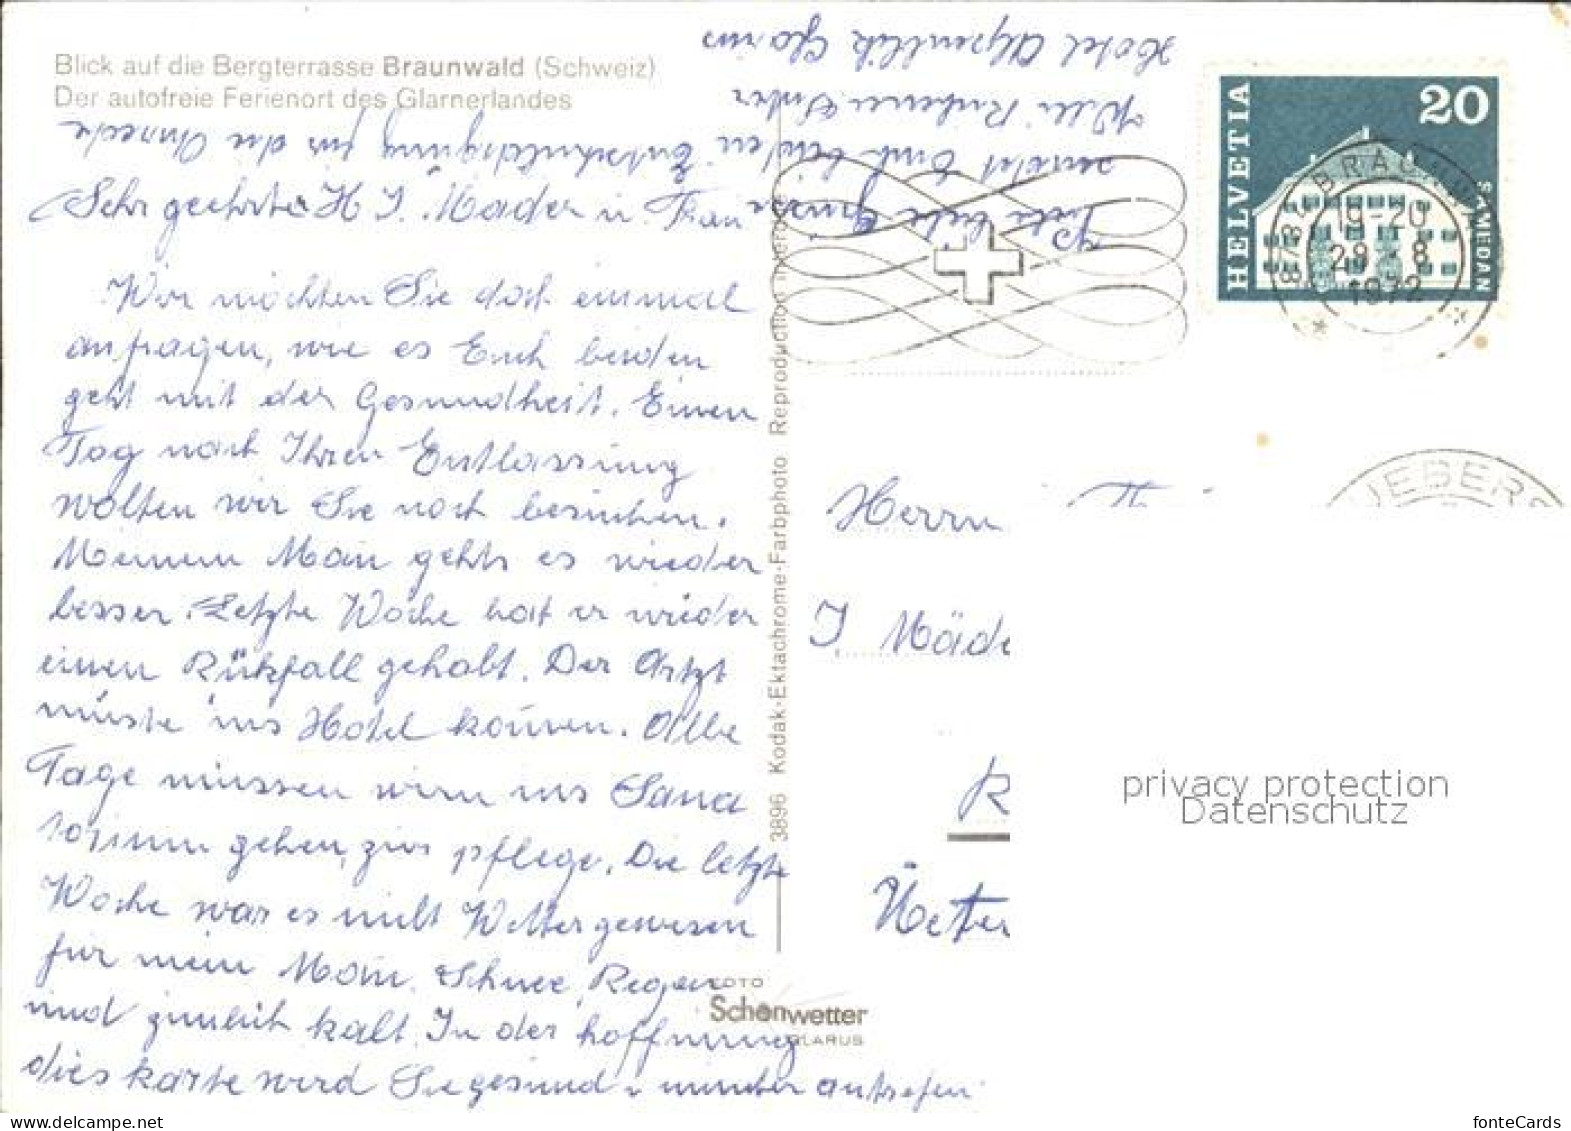 Blick auf die Bergterrasse Braunwald (Schweiz)
Der autofreie Ferienort des Glarnerlandes
Sehr geehrter H J. Mader u Frau
Wir möchten Sie doch einmal
anfragen, wie es Euch beiden
geht mit der Gesundheit. Einen
Tag nach Ihren Entlassung
wolten wir Sie noch besuchen.
Meinem Man gehts es wieder
besser. Letzte Woche hat er wieder
einen Rükfall gehabt. Der Artzt
müste ins Hotel komen. Alle
Tage müssen wir ins Sana
torium gehen, zur pflege. Die letzte
Woche war es nicht Wetter gewesen
für mein Man. Schnee, Regen
und zimlich kalt. In der hoffnung
dies karte wird Sie gesund u munter antrefen
Viele liebe Grüsse
sendet Euch beiden
Entschuldigung für die Anrede
Hotel Alpenblik Glarus
3896 Kodak-Ektachrome-Farbphoto Reproduction interdite
FOTO
Schönwetter
GLARUS
HELVETIA
20
SAMEDAN
BRAUNWALD
19-20
29.-8
1972
UEBERS
Herrn
J. Mäde
R
Ueter
privacy protection
Datenschutz
fonteCards